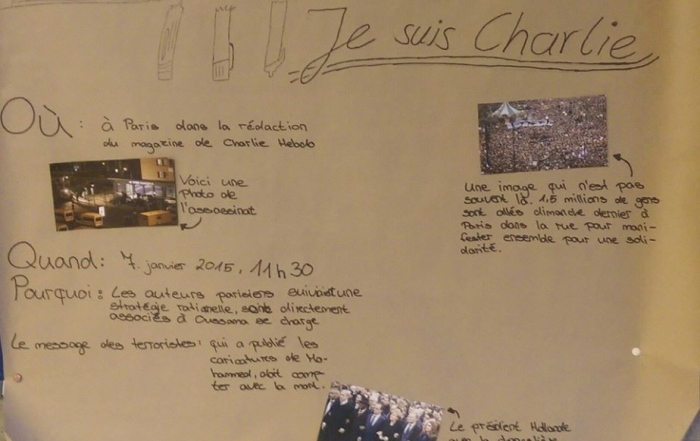 Je suis Charlie
Où : à Paris dans la rédaction
du magazine de Charlie Hebdo
Voici une
Photo de
l'assassinat
Une image qui n'est pas
souvent là. 1,5 millions de gens
sont allés dimanche dernier à
Paris dans la rue pour mani-
fester ensemble pour une soli-
darité.
Quand: 7. janvier 2015, 11h30
Pourquoi: Les auteurs parisiens suivaient une
stratégie rationelle, sont directement
associés à Oussama se charge
Le message des terroristes: qui a publié les
caricatures de Mo-
hammed, doit comp-
ter avec la mort.
Le président Hollande